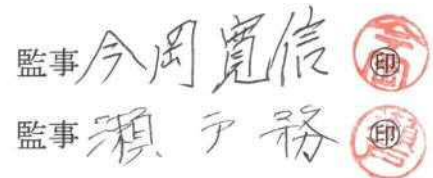 監事 今岡寛信 ㊞
監事 瀬戸 務 ㊞